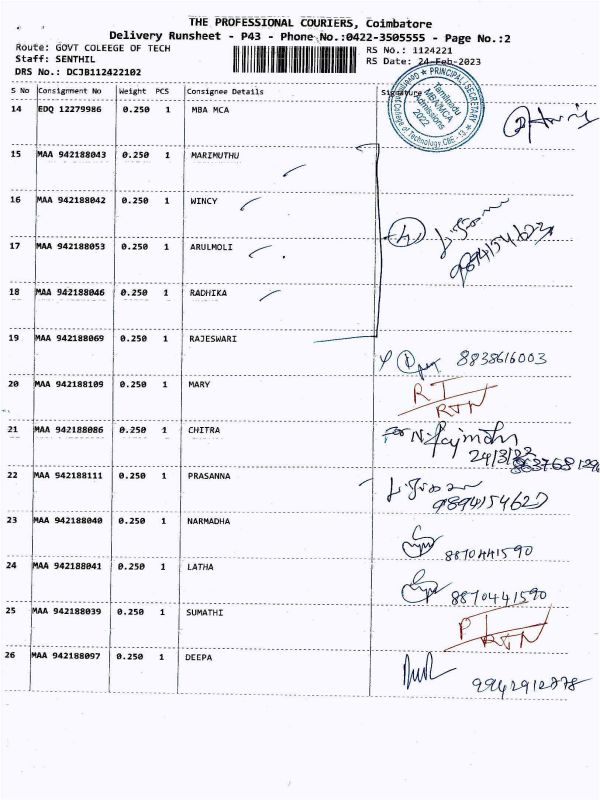 THE PROFESSIONAL COURIERS, Coimbatore
Delivery Runsheet - P43 - Phone No.:0422-3505555 - Page No.:2
Route: GOVT COLEEGE OF TECH
RS No.: 1124221
Staff: SENTHIL
RS Date: 24-Feb-2023
DRS No.: DCJB112422102
S No Consignment No Weight PCS Consignee Details Signature
PRINCIPAL / SECRETARY
Tamilnadu
MBA/MCA
Admissions
2022
College of Technology, CBE - 13
14 EDQ 12279986 0.250 1 MBA MCA
15 MAA 942188043 0.250 1 MARIMUTHU
16 MAA 942188042 0.250 1 WINCY
9894154623
17 MAA 942188053 0.250 1 ARULMOLI
18 MAA 942188046 0.250 1 RADHIKA
19 MAA 942188069 0.250 1 RAJESWARI
8838616003
20 MAA 942188109 0.250 1 MARY
RTN
21 MAA 942188086 0.250 1 CHITRA
for N.
22 MAA 942188111 0.250 1 PRASANNA
23 MAA 942188040 0.250 1 NARMADHA
8870441590
24 MAA 942188041 0.250 1 LATHA
8870441590
25 MAA 942188039 0.250 1 SUMATHI
RTN
26 MAA 942188097 0.250 1 DEEPA